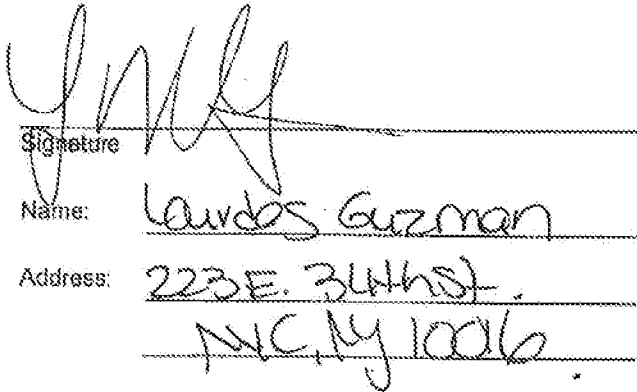 Signature
Name: Lourdes Guzman
Address: 223 E. 34th St.
NYC, NY 10016